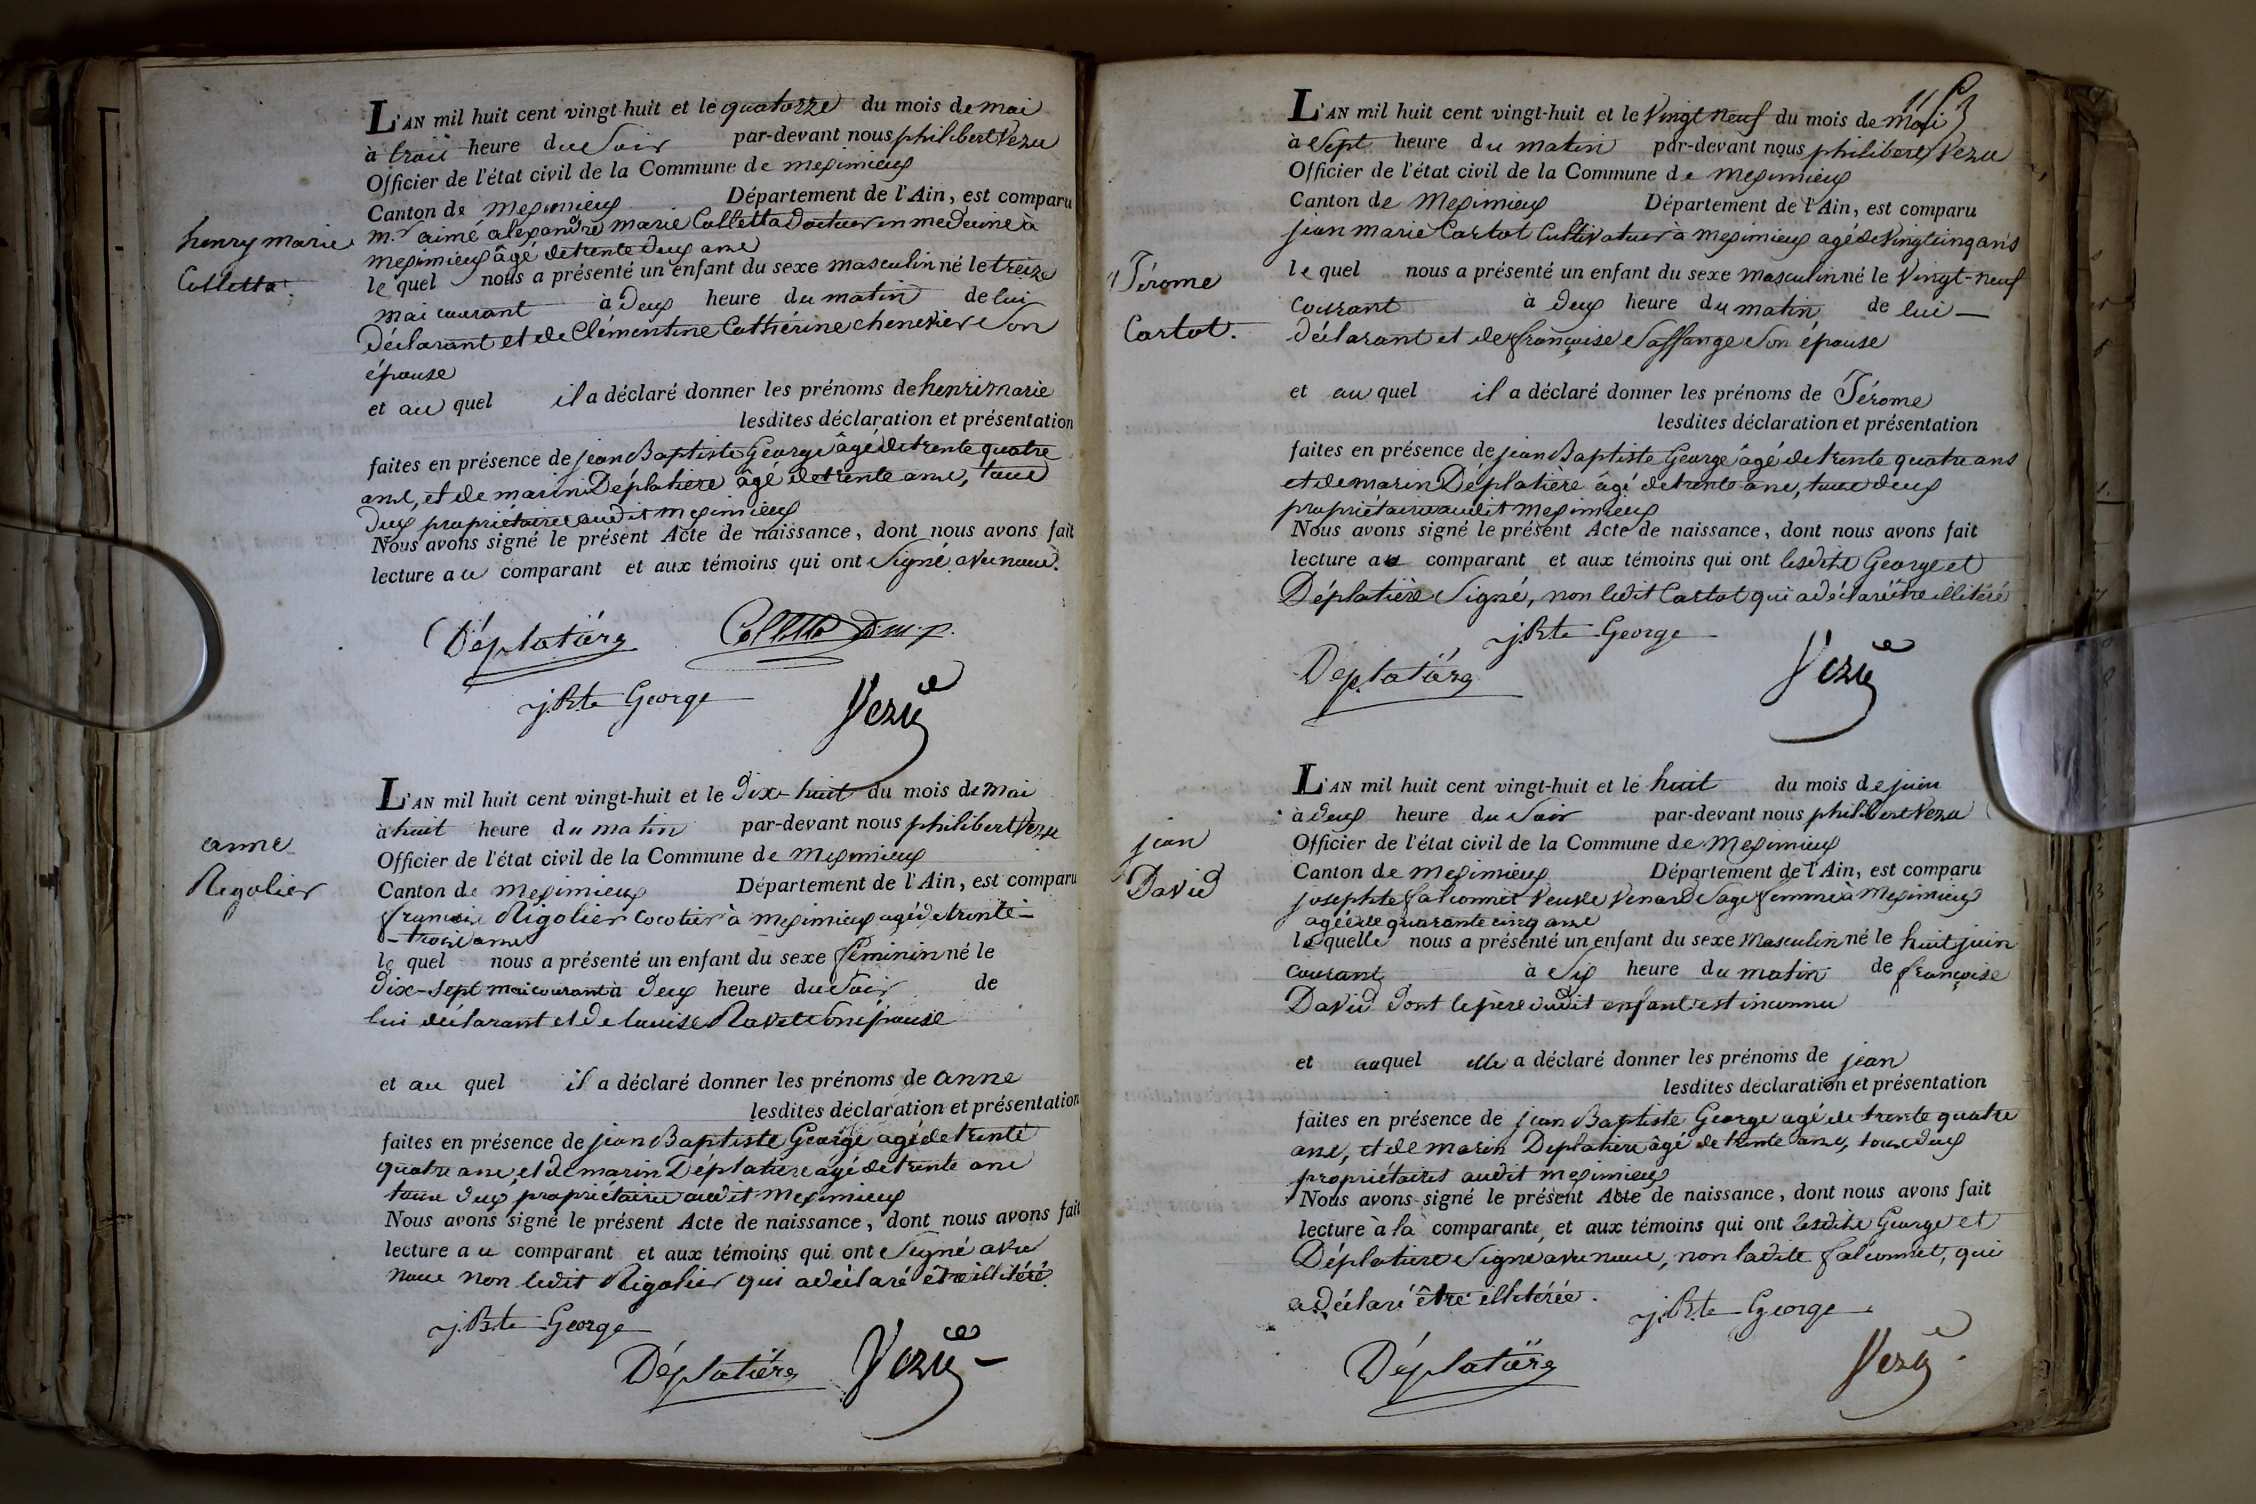 L'AN mil huit cent vingt-huit et le quatorze du mois de mai
à trois heure du soir par-devant nous philibert Vezu
Officier de l'état civil de la Commune de meximieux
Canton de meximieux Département de l'Ain, est comparu
m.r aimé alexandre marie Colletta Docteur en medecine à
meximieux âgé de trente deux ans
le quel nous a présenté un enfant du sexe masculin né le treize
mai courant à deux heure du matin de lui
Déclarant et de Clémentine Cathérine chenevier son
épouse
et au quel il a déclaré donner les prénoms de henri marie
lesdites déclaration et présentation
faites en présence de jean Baptiste George âgé de trente quatre
ans, et de marin Déplatière âgé de trente ans, tous
deux propriétaires audit meximieux
Nous avons signé le présent Acte de naissance, dont nous avons fait
lecture au comparant et aux témoins qui ont signé avec nous.
Déplatière Colletta D.m.p.
j. Bte George Vezu
henry marie
Colletta
L'AN mil huit cent vingt-huit et le Dix-huit du mois de mai
à huit heure du matin par-devant nous philibert Vezu
Officier de l'état civil de la Commune de meximieux
Canton de meximieux Département de l'Ain, est comparu
françois Rigolier cocotier à meximieux agé de trente-
-trois ans
le quel nous a présenté un enfant du sexe féminin né le
Dix-sept mai courant à Deux heure du soir de
lui déclarant et de louise Ravet son épouse
et au quel il a déclaré donner les prénoms de anne
lesdites déclaration et présentation
faites en présence de jean Baptiste George agé de trente
quatre ans, et de marin Déplatière âgé de trente ans
tous deux propriétaires audit meximieux
Nous avons signé le présent Acte de naissance, dont nous avons fait
lecture au comparant et aux témoins qui ont signé avec
nous non ledit Rigolier qui a déclaré être illitéré.
j. Bte George
Déplatière Vezu
anne
Rigolier
L'AN mil huit cent vingt-huit et le Vingt neuf du mois de mai
à sept heure du matin par-devant nous philibert Vezu
Officier de l'état civil de la Commune de meximieux
Canton de meximieux Département de l'Ain, est comparu
jean marie Cartot Cultivateur à meximieux agé de Vingt cinq ans
le quel nous a présenté un enfant du sexe masculin né le Vingt-neuf
courant à deux heure du matin de lui
déclarant et de françoise Saffange son épouse
et au quel il a déclaré donner les prénoms de Jérome
lesdites déclaration et présentation
faites en présence de jean Baptiste George âgé de trente quatre ans
et de marin Déplatière âgé de trente ans, tous deux
propriétaires audit meximieux
Nous avons signé le présent Acte de naissance, dont nous avons fait
lecture au comparant et aux témoins qui ont lesdits George et
Déplatière signé, non ledit Cartot qui a déclaré être illitéré
j. Bte George
Déplatière Vezu
Jérome
Cartot.
L'AN mil huit cent vingt-huit et le huit du mois de juin
à deux heure du soir par-devant nous philibert Vezu
Officier de l'état civil de la Commune de Meximieux
Canton de meximieux Département de l'Ain, est comparu
josephte falconnet Veuve Venard Sage femme à Meximieux
agée de quarante cinq ans
laquelle nous a présenté un enfant du sexe Masculin né le huit juin
courant à six heure du matin de françoise
David dont le père dudit enfant est inconnu
et auquel elle a déclaré donner les prénoms de jean
lesdites déclaration et présentation
faites en présence de jean Baptiste George agé de trente quatre
ans, et de marin Deplatière âgé de trente ans, tous deux
propriétaires audit meximieux
Nous avons signé le présent Acte de naissance, dont nous avons fait
lecture à la comparante, et aux témoins qui ont lesdits George et
Déplatière signé avec nous, non ladite falconnet, qui
a Déclaré être illitérée.
j. Bte George
Déplatière Vezu
jean
David